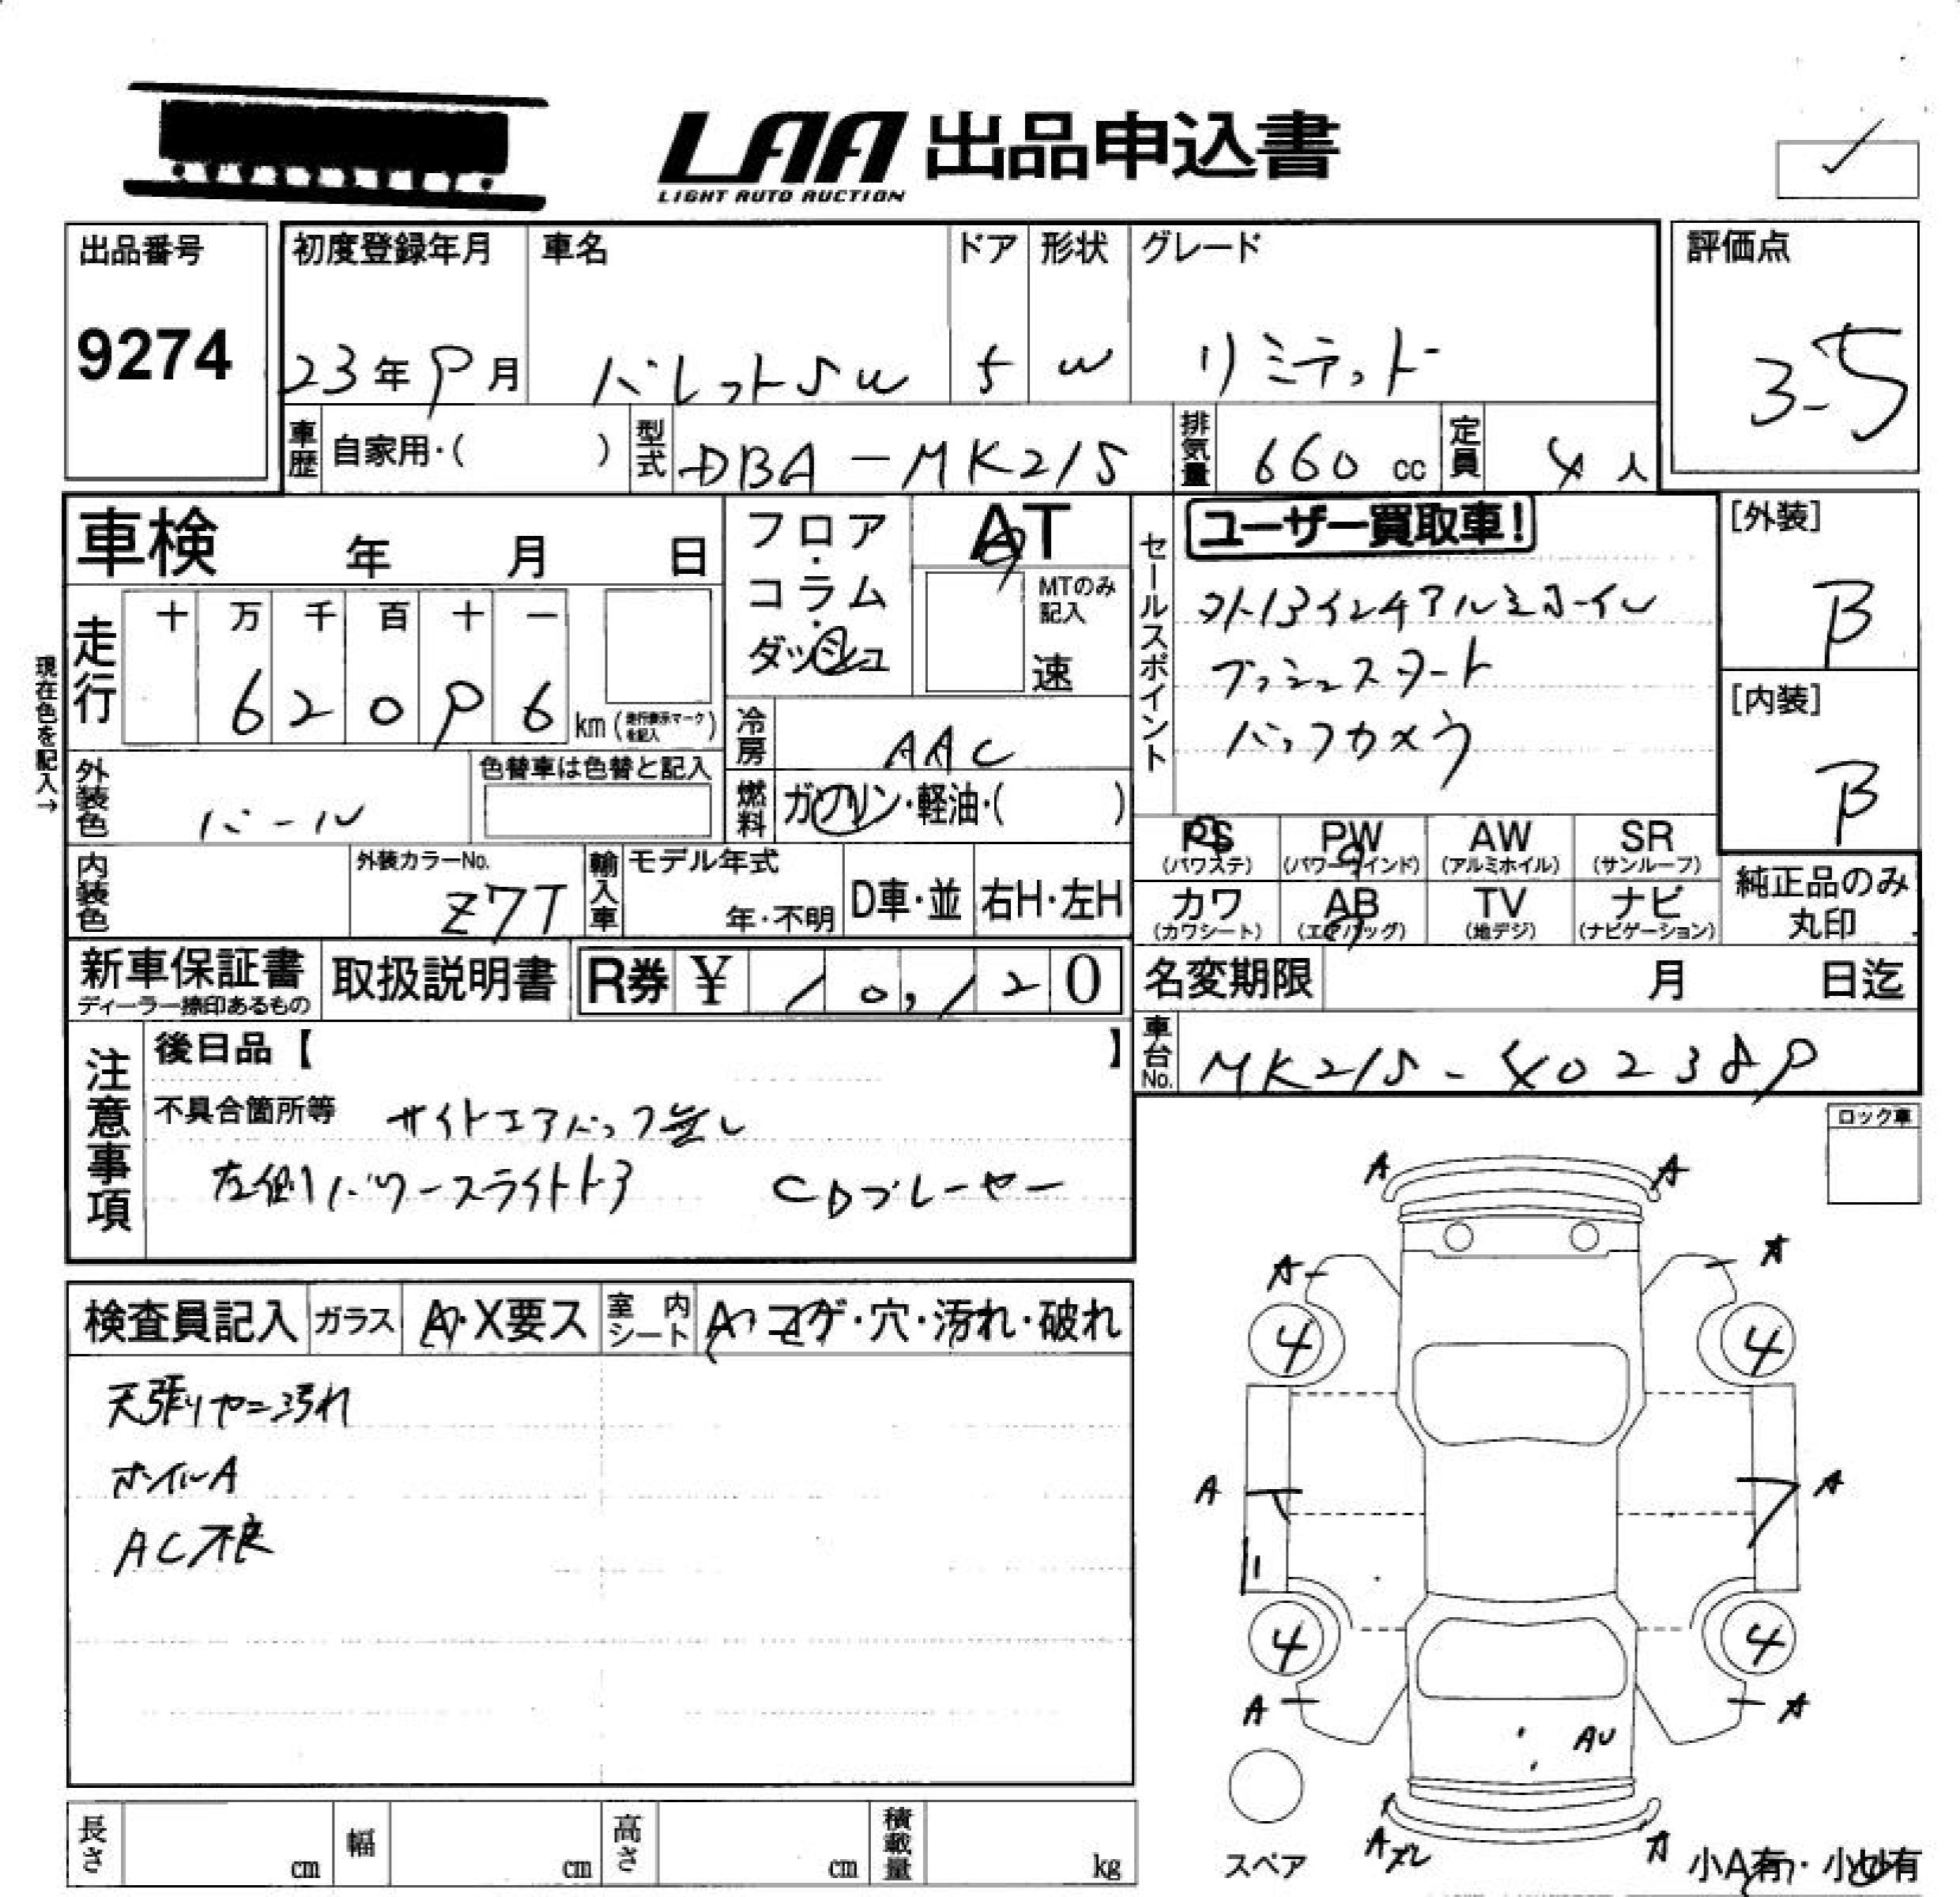 LAA 出品申込書
LIGHT AUTO AUCTION
出品番号
9274
初度登録年月
23年9月
車名
バレットSW
ドア
5
形状
W
グレード
リミテッド
評価点
3-5
車歴 自家用・( )
型式 DBA-MK21S
排気量 660 cc
定員 4人
車検 年 月 日
フロア・コラム・ダッシュ
AT
MTのみ記入
速
セールスポイント
ユーザー買取車!
外13インチアルミホイル
プッシュスタート
バックカメラ
[外装]
B
[内装]
B
現在色を記入→
走行
十 万 千 百 十 一
6 2 0 9 6 km (走行表示マークを記入)
冷房 AAC
燃料 ガソリン・軽油・( )
外装色 パール
色替車は色替と記入
内装色
外装カラーNo.
Z7T
輸入車
モデル年式
年・不明
D車・並
右H・左H
PS (パワステ)
PW (パワーウインド)
AW (アルミホイル)
SR (サンルーフ)
カワ (カワシート)
AB (エアバッグ)
TV (地デジ)
ナビ (ナビゲーション)
純正品のみ丸印
新車保証書
ディーラー捺印あるもの
取扱説明書
R券 ¥ 10,120
名変期限 月 日迄
車台No. MK21S-402389
注意事項
後日品【 】
不具合箇所等 サイドエアバッグ無し
左側パワースライドドア CDプレーヤー
ロック車
検査員記入
ガラス A・X要ス
室内シート A・コゲ・穴・汚れ・破れ
天張りヤニ汚れ
ホイルA
AC不良
A A
A A
4 4
A A
4 4
A A
AU
Aズレ A
スペア
小A有・小U有
長さ cm
幅 cm
高さ cm
積載量 kg